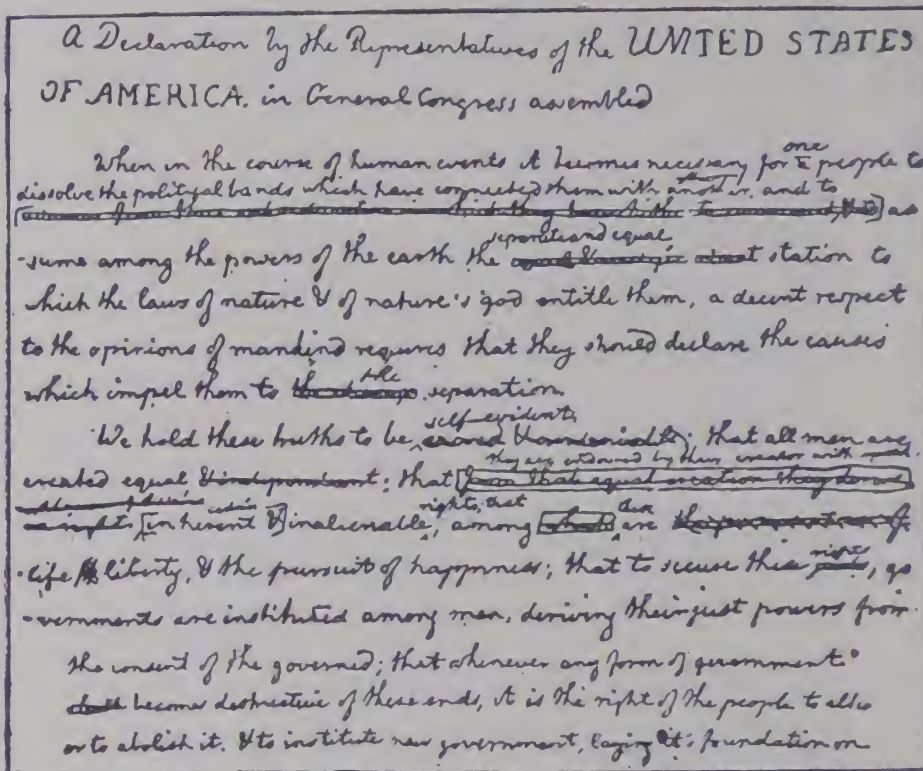 A Declaration by the Representatives of the UNITED STATES
OF AMERICA. in General Congress assembled
When in the course of human events it becomes necessary for one people to
dissolve the political bands which have connected them with another, and to as
-sume among the powers of the earth the separate and equal station to
which the laws of nature & of nature's god entitle them, a decent respect
to the opinions of mankind requires that they should declare the causes
which impel them to the separation
We hold these truths to be self-evident; that all men are
created equal & independant; that they are endowed by their creator with from that equal creation they derive
rights [inherent &] inalienable rights, that among these are the preservation of
life & liberty, & the pursuit of happiness; that to secure these rights, go
-vernments are instituted among men, deriving their just powers from
the consent of the governed; that whenever any form of government
shall becomes destructive of these ends, it is the right of the people to alter
or to abolish it, & to institute new government, laying it's foundation on